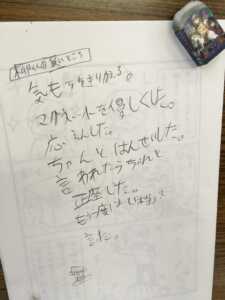 良いところ
気もちをきりかえる。
マグネットを優しくした。
応えんした。
ちゃんとはんせいした。
言われたらちゃんと
正座した。
もう一度
言った。